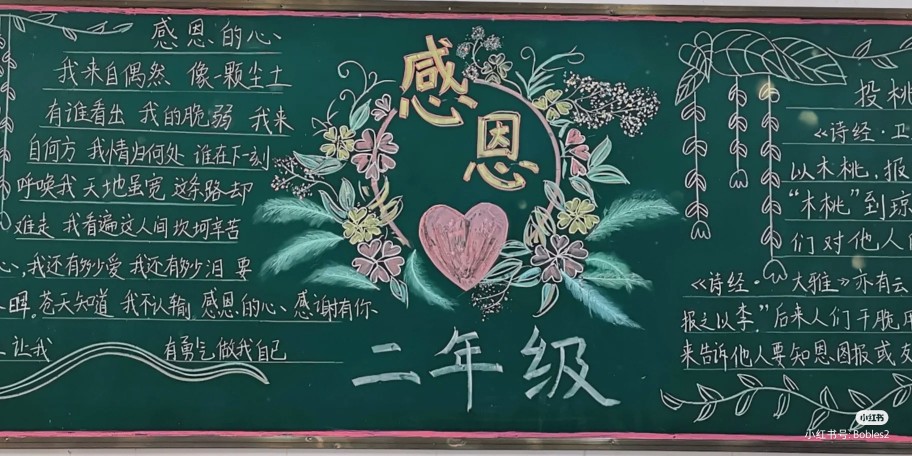 感恩的心
我来自偶然 像一颗尘土
有谁看出 我的脆弱 我来
自何方 我情归何处 谁在下一刻
呼唤我 天地虽宽 这条路却
难走 我看遍这人间坎坷辛苦
心,我还有多少爱 我还有多少泪 要
苍天知道 我不认输 感恩的心 感谢有你
让我 有勇气做我自己
感恩
二年级
投桃
《诗经·卫
以木桃,报
“木桃”到琼
们对他人
《诗经·大雅》亦有云
报之以李。”后来人们干脆用
来告诉他人要知恩图报或友
小红书
小红书号:Bobles2